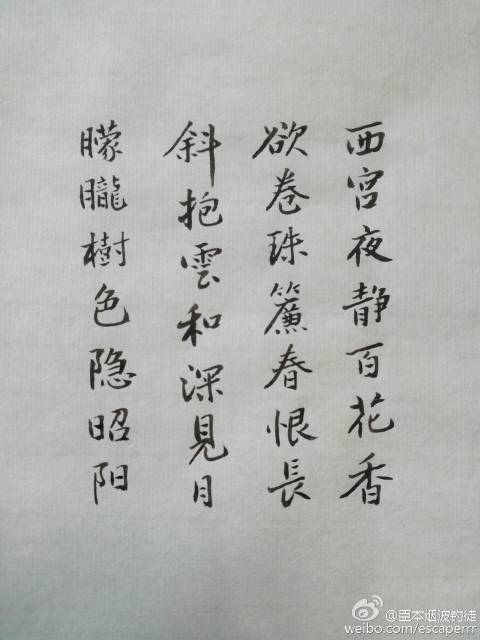 西宮夜静百花香
欲卷珠簾春恨長
斜抱雲和深見月
朦朧樹色隐昭阳
@臣本烟波钓徒
weibo.com/escaperrr